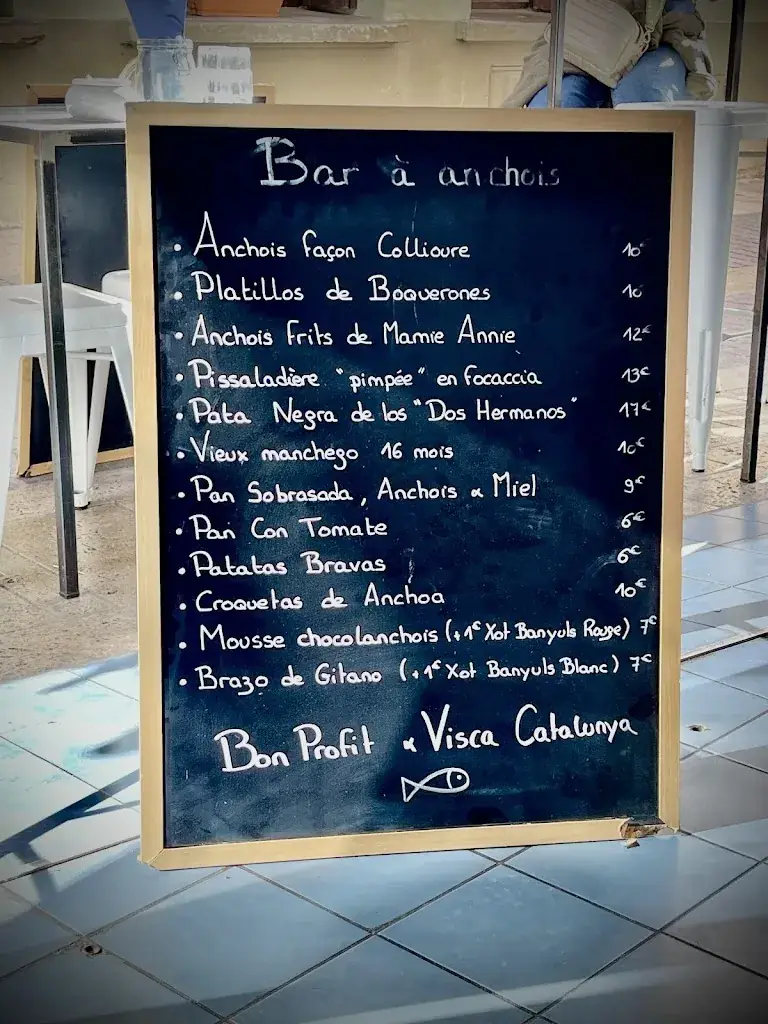 Bar à anchois
• Anchois façon Collioure 10€
• Platillos de Boquerones 10
• Anchois frits de Mamie Annie 12€
• Pissaladière "pimpée" en focaccia 13€
• Pata Negra de los "Dos Hermanos" 17€
• Vieux manchego 16 mois 10€
• Pan Sobrasada, Anchois & Miel 9€
• Pan Con Tomate 6€
• Patatas Bravas 6€
• Croquetas de Anchoa 10€
• Mousse chocolanchois (+1€ Xot Banyuls Rouge) 7€
• Brazo de Gitano (+1€ Xot Banyuls Blanc) 7€
Bon Profit & Visca Catalunya